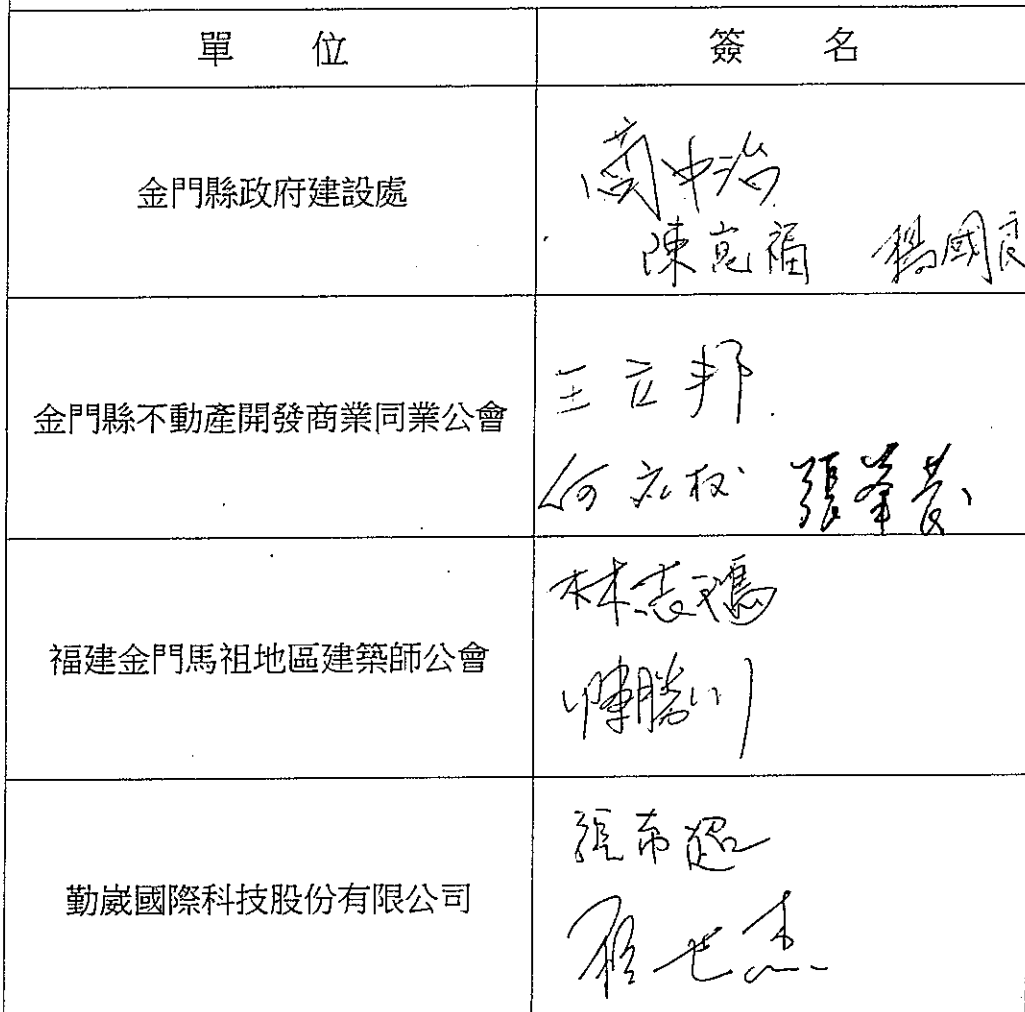 單 位
簽 名
金門縣政府建設處
中治
陳寬福 楊國良
金門縣不動產開發商業同業公會
王立邦
何 張峯
福建金門馬祖地區建築師公會
林志鴻
陳勝川
勤崴國際科技股份有限公司
張希
世杰